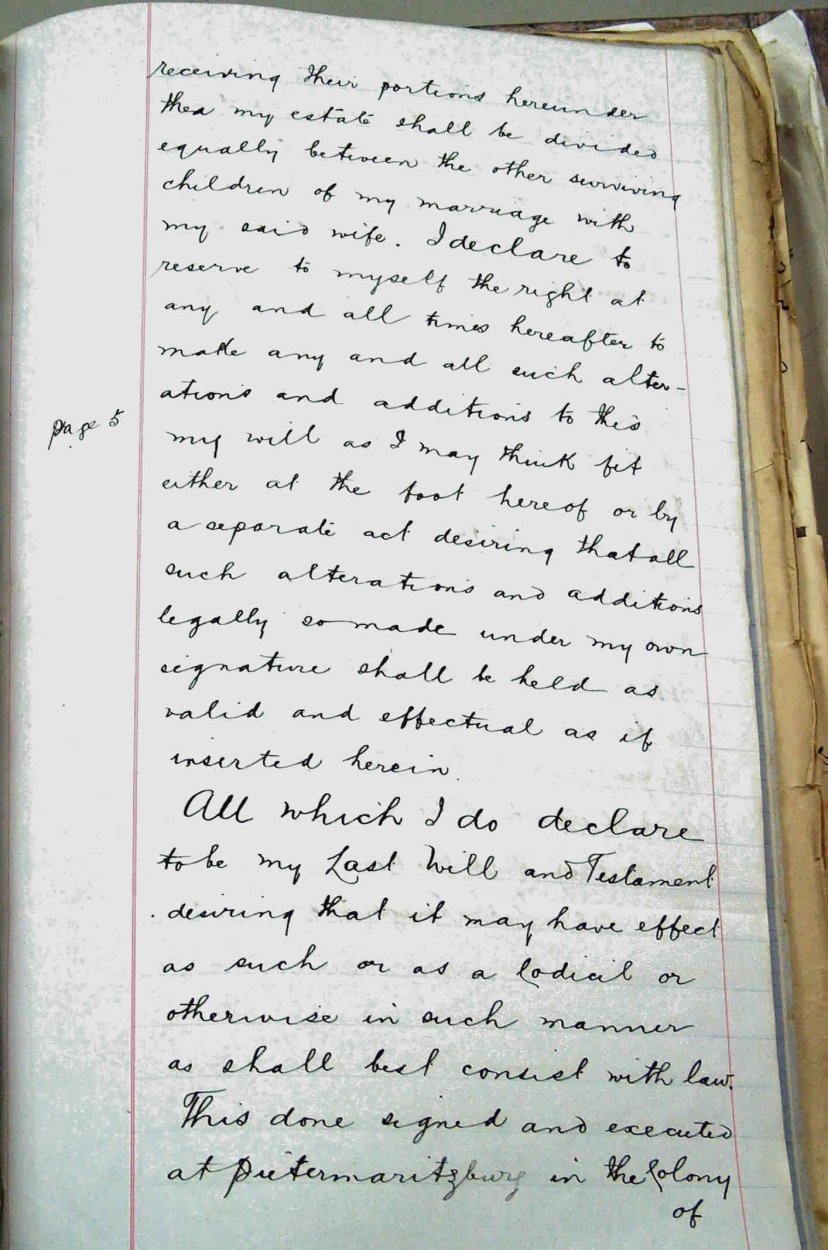 receiving their portions hereunder
then my estate shall be divided
equally between the other surviving
children of my marriage with
my said wife. I declare to
reserve to myself the right at
any and all times hereafter to
make any and all such alter-
ations and additions to this
page 5
my will as I may think fit
either at the foot hereof or by
a separate act desiring that all
such alterations and additions
legally so made under my own
signature shall be held as
valid and effectual as if
inserted herein.
All which I do declare
to be my Last Will and Testament
desiring that it may have effect
as such or as a Codicil or
otherwise in such manner
as shall best consist with law.
This done signed and executed
at Pietermaritzburg in the Colony
of